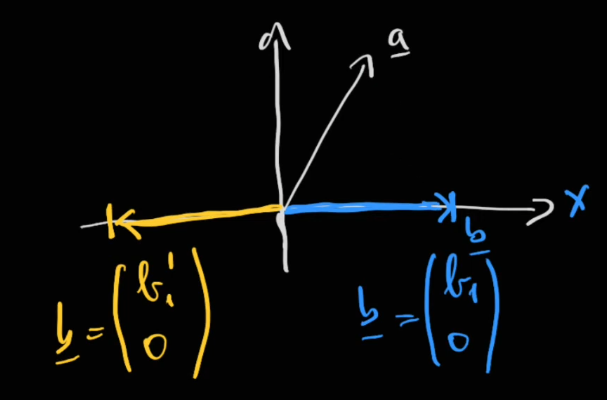 a
x
b
b = (b₁' 0)
b = (b₁ 0)